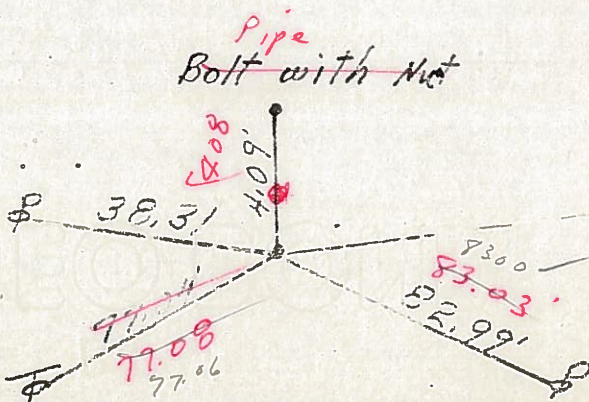 Pipe
Bolt with Nut
4.08
4.09'
38.31
83.00
83.03'
82.99'
77.08
77.06